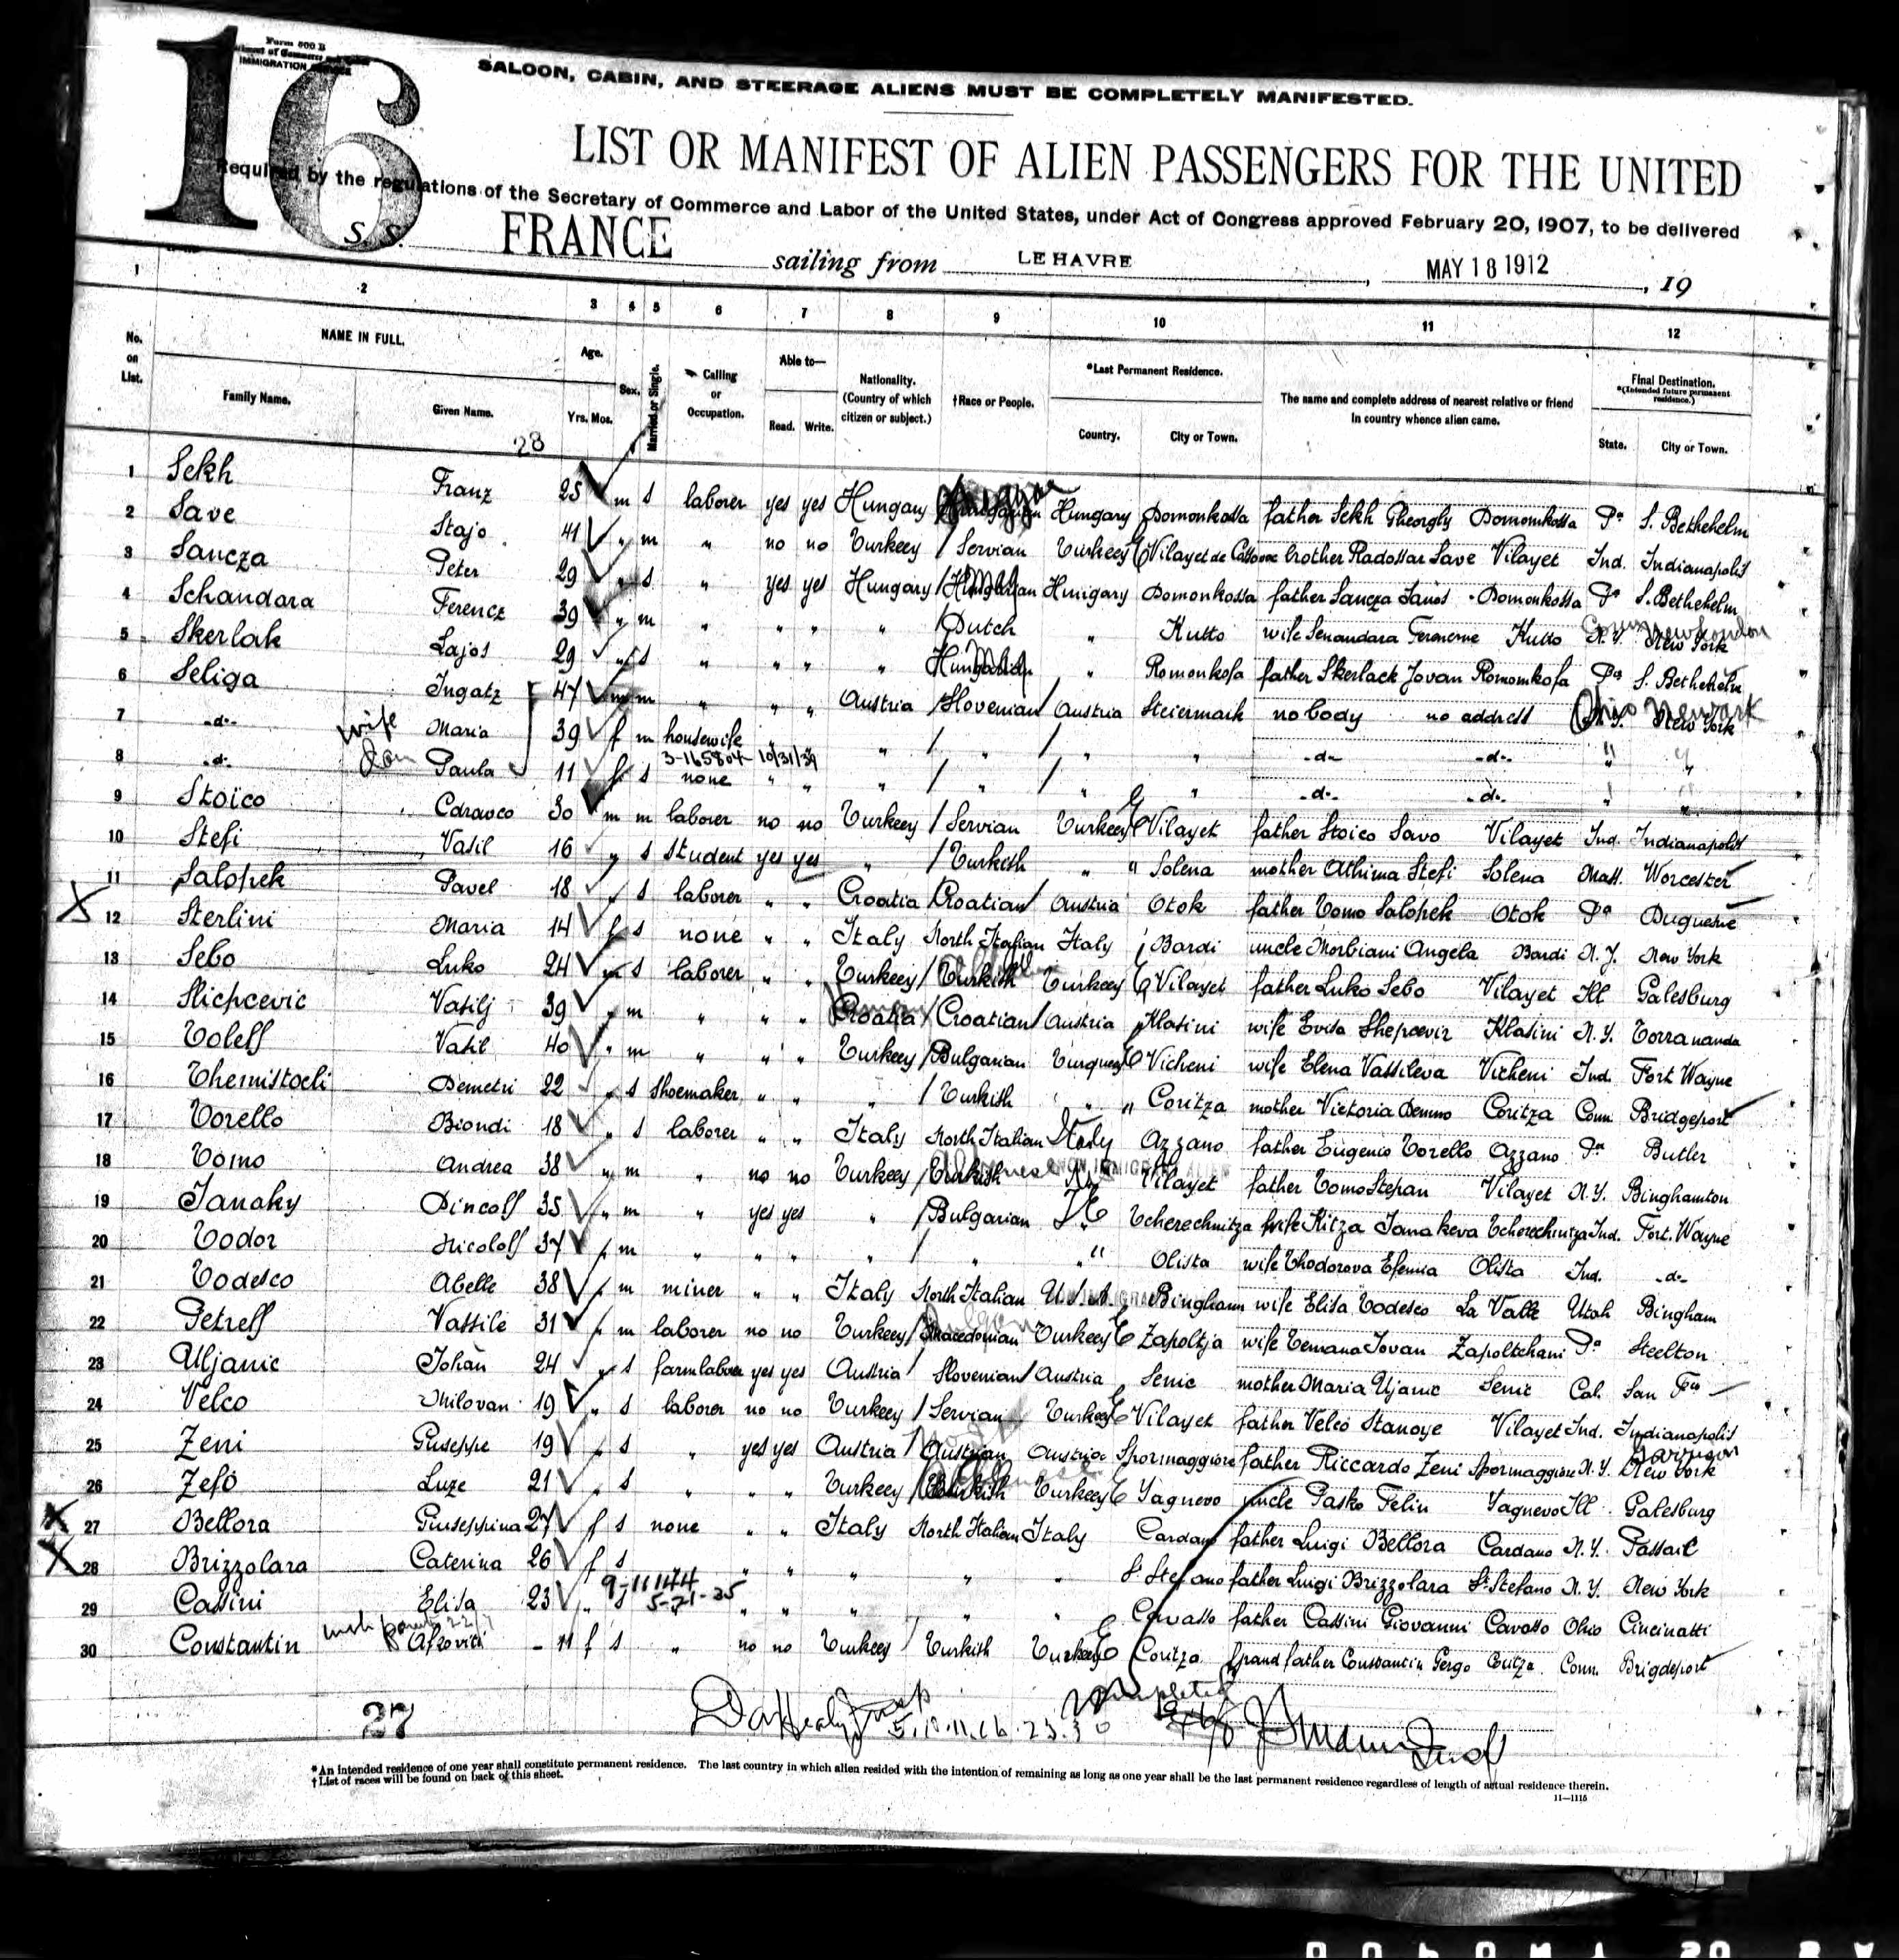 16
Form 500 B
IMMIGRATION
SALOON, CABIN, AND STEERAGE ALIENS MUST BE COMPLETELY MANIFESTED.
LIST OR MANIFEST OF ALIEN PASSENGERS FOR THE UNITED
Required by the regulations of the Secretary of Commerce and Labor of the United States, under Act of Congress approved February 20, 1907, to be delivered
S. S. FRANCE sailing from LE HAVRE, MAY 18 1912, 19
1 2 3 4 5 6 7 8 9 10 11 12
No. on List. NAME IN FULL. Family Name. Given Name. Age. Yrs. Mos. Sex. Married or Single. Calling or Occupation. Able to— Read. Write. Nationality. (Country of which citizen or subject.) †Race or People. *Last Permanent Residence. Country. City or Town. The name and complete address of nearest relative or friend in country whence alien came. Final Destination. *(Intended future permanent residence.) State. City or Town.
28
1 Sekh Franz 25 m s laborer yes yes Hungary Hungary Domonkossa father Sekh Gheorghy Domomkossa Pa S. Bethehelm
2 Save Stajo 41 " m " no no Turkeey Servian Turkeey Vilayet de Cossove brother Radossar Save Vilayet Ind. Indianapolis
3 Sancza Peter 29 " s " yes yes Hungary Hungary Domonkossa father Sancza Janos Domonkossa Pa S. Bethehelm
4 Schandara Ferencz 39 " m " " " " Dutch " Kutto wife Senandara Kutto N.Y. New York Conn New London
5 Skerlak Lajos 29 " s " " " " " Romonkosa father Skerlack Jovan Romomkosa Pa S. Bethehelm
6 Seliga Ingatz 47 m m " " " Austria Slovenian Austria Steiermark no body no address N.Y. New York Ohio Newark
7 -d- wife Maria 39 f m housewife " " " " " " -d- -d- " "
3-165804 10/31/39
8 -d- Paula 11 f s none " " " " " " -d- -d- " "
9 Stoïco Cdravco 30 m m laborer no no Turkeey Servian Turkeey Vilayet father Stoico Savo Vilayet Ind. Indianapolis
10 Stefi Vasil 16 " s student yes yes " Turkish " Solena mother Athima Stefi Solena Mass. Worcester
11 Salopek Pavel 18 " s laborer " " Croatia Croatian Austria Otok father Tomo Salopek Otok Pa Duquesne
12 Sterlini Maria 14 f s none " " Italy North Italian Italy Bardi uncle Morbiani Angela Bardi N.Y. New York
13 Sebo Luko 24 m s laborer " " Turkeey Turkish Turkeey Vilayet father Luko Sebo Vilayet Ill Galesburg
14 Slicpcevic Vasilj 39 " m " " " Croatia Croatian Austria Klasini wife Evisa Shepcevir Klasini N.Y. Torrananda
15 Toleff Vasil 40 " m " " " Turkeey Bulgarian Turquey Vicheni wife Elena Vassileva Vicheni Ind. Fort Wayne
16 Themistocli Demetri 22 " s shoemaker " " " Turkish " Coritza mother Victoria Demmo Coritza Conn. Bridgeport
17 Torello Biondi 18 " s laborer " " Italy North Italian Italy Azzano father Eugenio Torello Azzano Pa Butler
18 Tomo Andrea 38 " m " no no Turkeey Turkish NON IMMIGRANT ALIEN Vilayet father Tomo Stepan Vilayet N.Y. Binghamton
19 Janaky Dincoff 35 " m " yes yes " Bulgarian Tcherechnitza wife Kitza Janakeva Tcherechnitza Ind. Fort. Wayne
20 Todor Nicoloff 37 " m " " " " " " Olista wife Thodorova Efemia Olista Ind. -d-
21 Todesco Abelle 38 " m miner " " Italy North Italian U.S.A. Bingham wife Elisa Todesco La Valle Utah Bingham
22 Petreff Vassile 31 " m laborer no no Turkeey Macedonian Turkeey Zapoltja wife Temana Jovan Zapoltchani Pa Steelton
23 Uljanic Johan 24 " s farmlaborer yes yes Austria Slovenian Austria Senic mother Maria Ujanic Senic Cal. San Fco
24 Velco Milovan 19 " s laborer no no Turkeey Servian Turkeey Vilayet father Velco Stanoye Vilayet Ind. Indianapolis
25 Zeni Guseppe 19 " s " yes yes Austria Austrian Austria Spormaggiore father Riccardo Zeni Spormaggiore N.Y. New York
26 Zefo Luze 21 " s " " " Turkeey Turkish Turkeey Yagnevo uncle Pasko Felin Yagnevo Ill. Galesburg
27 Bellora Giuseppina 27 f s none " " Italy North Italian Italy Cardano father Luigi Bellora Cardano N.Y. Passaic
28 Brizzolara Caterina 26 f s " " " " " St Stefano father Luigi Brizzolara St Stefano N.Y. New York
9-11144 5-21-35
29 Cassini Elisa 23 " s " " " " " Cavasso father Cassini Giovanni Cavasso Ohio Cincinatti
30 Constantin Afroviti - 11 f s " no no Turkeey Turkish Turkeey Coritza grand father Constantin Gergo Coritza Conn. Brigdeport
27
*An intended residence of one year shall constitute permanent residence. The last country in which alien resided with the intention of remaining as long as one year shall be the last permanent residence regardless of length of actual residence therein.
†List of races will be found on back of this sheet.
11—1115